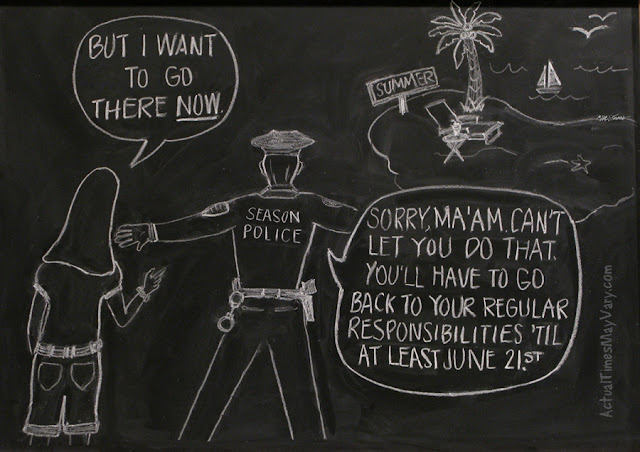 BUT I WANT
TO GO
THERE NOW.
SUMMER
SEASON
POLICE
SORRY, MA'AM. CAN'T
LET YOU DO THAT.
YOU'LL HAVE TO GO
BACK TO YOUR REGULAR
RESPONSIBILITIES 'TIL
AT LEAST JUNE 21.ST
ActualTimesMayVary.com